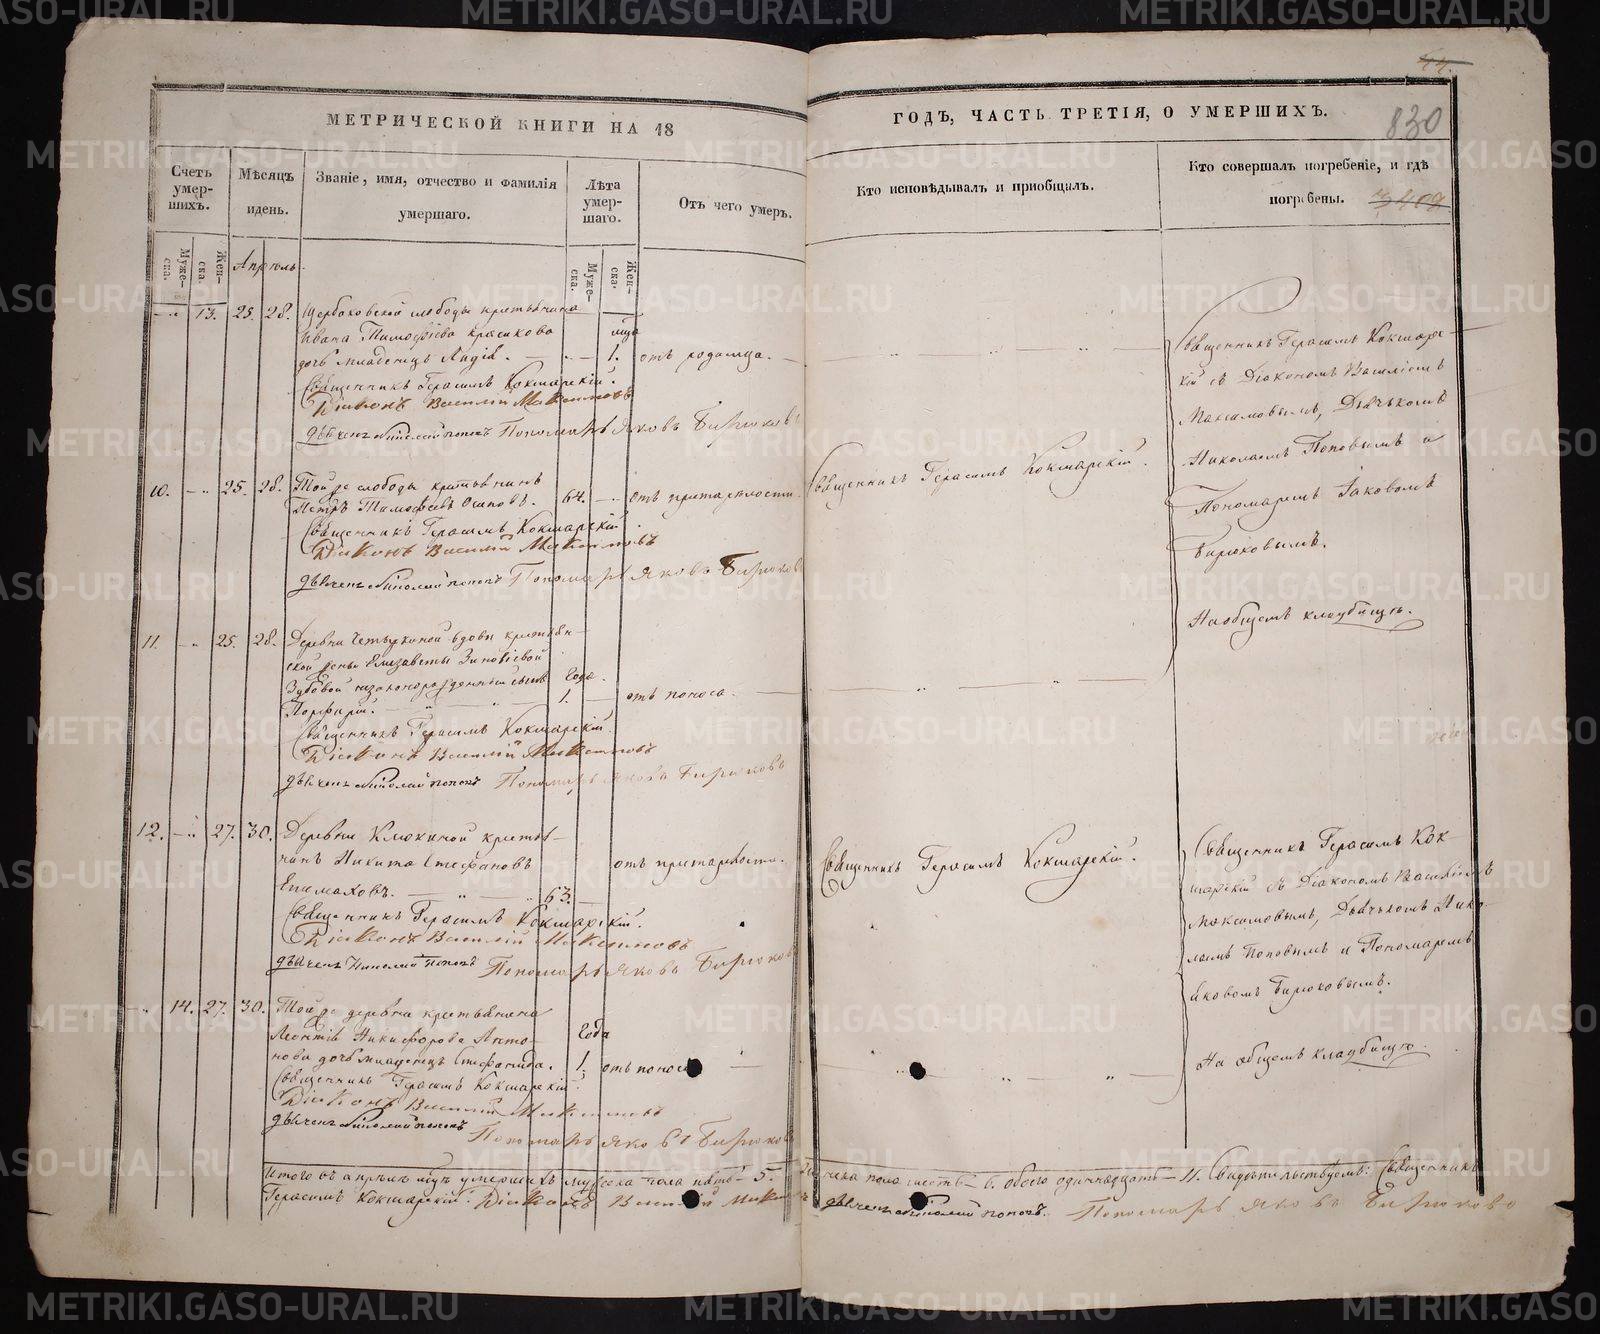 МЕТРИЧЕСКОЙ КНИГИ НА 18
ГОДЪ, ЧАСТЬ ТРЕТІЯ, О УМЕРШИХЪ.
830
Счетъ умер-
шихъ.
Мѣсяцъ
и день.
Званіе, имя, отчество и фамилія
умершаго.
Лѣта
умер-
шаго.
Отъ чего умеръ.
Кто исповѣдывалъ и пріобщалъ.
Кто совершалъ погребеніе, и гдѣ
погребены.
Муже-
ска.
Жен-
ска.
Муже-
ска.
Жен-
ска.
Апрѣль.
13. 25. 28. Щербаковской слободы крестьянина
Ивана Тимофѣева Красикова
дочь младенецъ Лидія. 1. отъ родимца.
Священникъ Герасимъ Кокшарскій.
Діаконъ Василій Максимовъ
Дьячекъ Николай Поповъ Пономарь Яковъ Бирюковъ
10. 25. 28. Той же слободы крестьянинъ
Петръ Тимофѣевъ Осиповъ. 64. отъ престарѣлости.
Священникъ Герасимъ Кокшарскій
Діаконъ Василій Максимовъ
Дьячекъ Николай Поповъ Пономарь Яковъ Бирюковъ
11. 25. 28. Деревни Четыркиной вдовы крестьян-
ской жены Елизаветы Зиновіевой
Зубовой незаконорожденный сынъ года.
Порфирій. 1. отъ поноса.
Священникъ Герасимъ Кокшарскій
Діаконъ Василій Максимовъ
Дьячекъ Николай Поповъ Пономарь Яковъ Бирюковъ
12. 27. 30. Деревни Клюкиной крестья-
нинъ Никита Стефановъ отъ престарѣлости.
Епимаховъ. 63.
Священникъ Герасимъ Кокшарскій.
Діаконъ Василій Максимовъ
Дьячекъ Николай Поповъ Пономарь Яковъ Бирюковъ
14. 27. 30. Той же деревни крестьянина
Леонтія Никифорова Анто-
нова дочь младенецъ Стефанида. года 1. отъ поноса
Священникъ Герасимъ Кокшарскій.
Діаконъ Василій Максимовъ
Дьячекъ Николай Поповъ
Пономарь Яковъ Бирюковъ
Священникъ Герасимъ Кокшарскій.
Священникъ Герасимъ Кокшарскій.
Священникъ Герасимъ Кокшарс-
кій съ Діакономъ Василіемъ
Максимовымъ, Дьячькомъ
Николаемъ Поповымъ и
Пономаремъ Іаковомъ
Бирюковымъ.
На общемъ кладбищѣ.
Священникъ Герасимъ Кок-
шарскій съ Діакономъ Василіемъ
Максимовымъ, Дьячькомъ Нико-
лаемъ Поповымъ и Пономаремъ
Яковомъ Бирюковымъ.
На общемъ кладбищѣ.
Итого въ апрѣлѣ м-цѣ умершихъ мужеска пола пять 5. женска пола шесть 6. обоего одиннадцать 11. Свидѣтельствуемъ: Священникъ
Герасимъ Кокшарскій. Діаконъ Василій Максимовъ Дьячекъ Николай Поповъ. Пономарь Яковъ Бирюковъ
METRIKI.GASO-URAL.RU